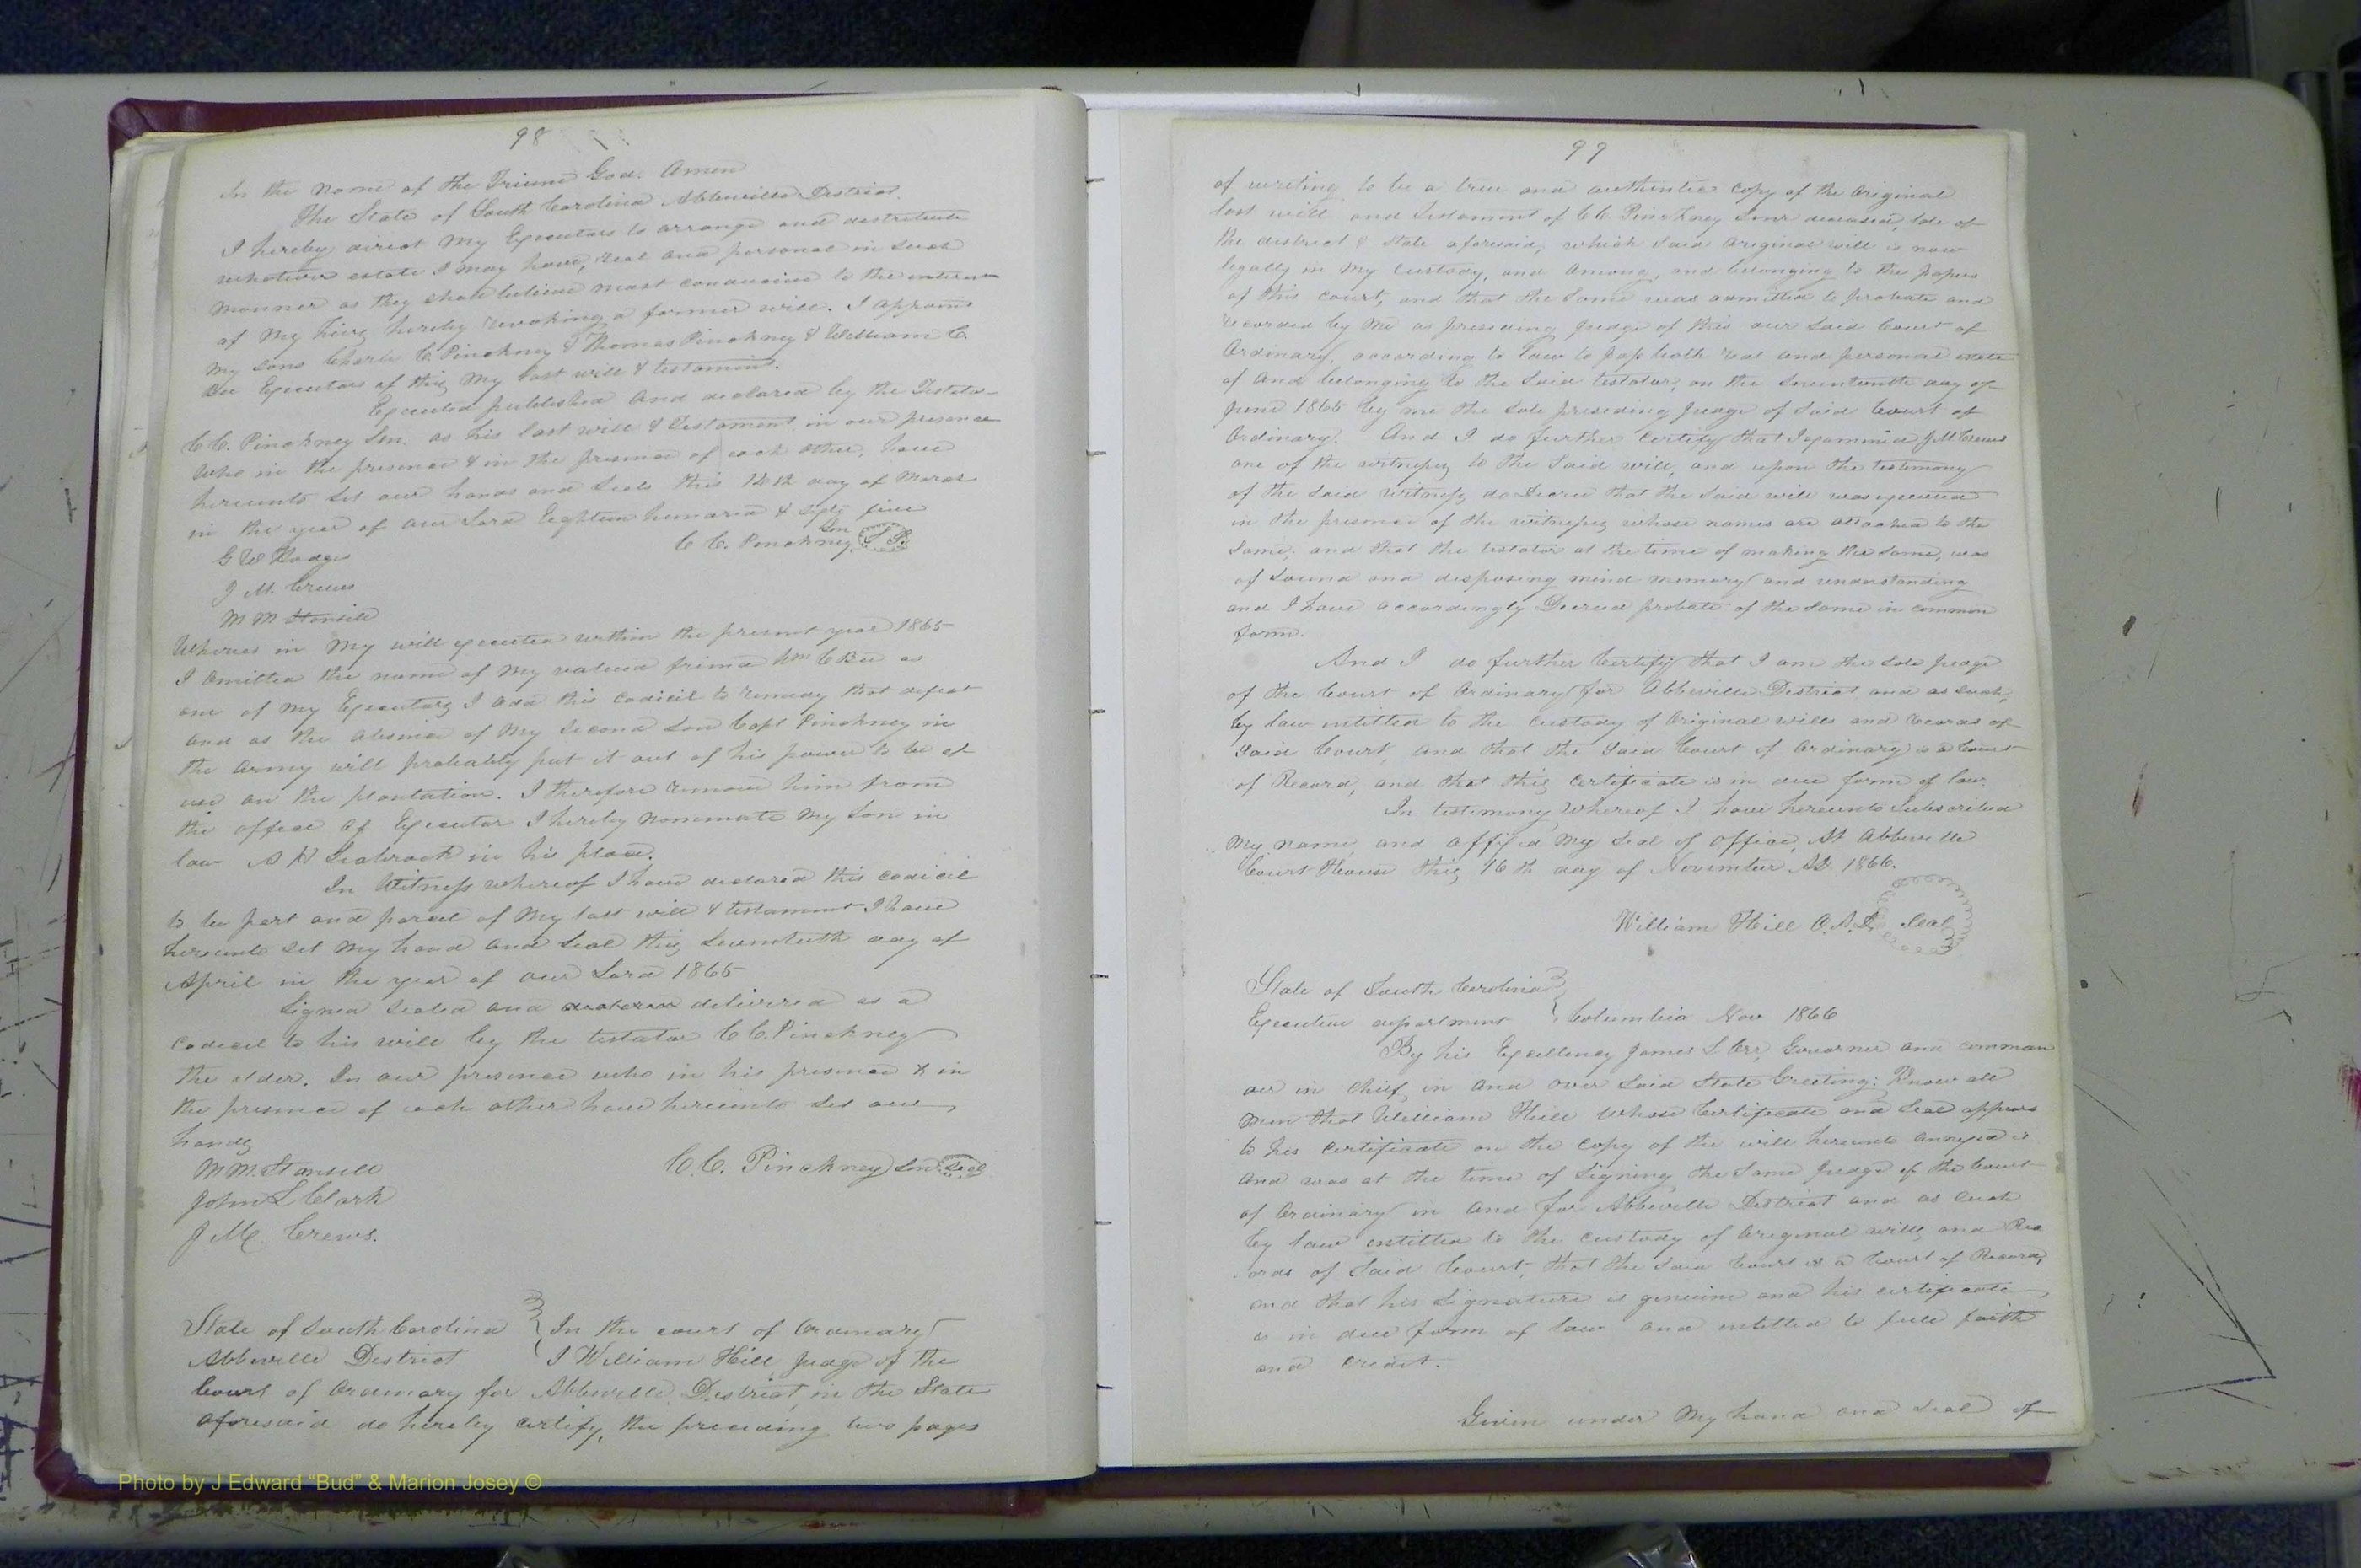 98
In the name of the Triune God. Amen
The State of South Carolina Abbeville District.
I hereby direct my Executors to arrange and distribute
whatever estate I may have, real and personal in such
manner as they shall believe most conducive to the interest
of my heirs hereby revoking a former will. I appoint
my sons Charles C Pinckney & Thomas Pinckney & William C.
Executors of this my last will & testament.
Executed published and declared by the Testator
C C. Pinckney Sen. as his last will & Testament in our presence
who in his presence & in the presence of each other, have
hereunto set our hands and seals this 12th day of March
in the year of our Lord Eighteen hundred & sixty five
G W Hodges
C C. Pinckney Sen L S.
J M. Crews
M M Stansell
Whereas in my will executed within the present year 1865
I omitted the name of my valued friend Wm C Bee as
one of my Executors I add this codicil to remedy that defect
and as the absence of my second son Capt Pinckney in
the army will probably put it out of his power to be of
use on the plantation. I therefore remove him from
the office of Executor I hereby nominate my son in
law A H Seabrook in his place.
In Witness whereof I have declared this codicil
to be part and parcel of my last will & testament I have
hereunto set my hand and seal this seventeenth day of
April in the year of our Lord 1865
Signed sealed and delivered as a
codicil to his will by the testator C C. Pinckney
the elder. In our presence who in his presence & in
the presence of each other have hereunto set our
hands
M M. Stansell
C. C. Pinckney Sen Seal
John L Clark
J M. Crews.
State of South Carolina } In the court of Ordinary
Abbeville District I William Hill Judge of the
Court of Ordinary for Abbeville District, in the State
aforesaid do hereby certify, the preceding two pages
99
of writing to be a true and authentic copy of the Original
last will and testament of C C. Pinckney Senr deceased, late of
the district & State aforesaid, which said Original will is now
legally in my custody, and among, and belonging to the papers
of this court, and that the same was admitted to probate and
recorded by me as presiding Judge of this our said Court of
Ordinary, according to law to pass both real and personal estate
of and belonging to the said testator, on the Seventeenth day of
June 1865 by me the sole presiding Judge of said Court of
Ordinary. And I do further certify that I examined J M Crews
one of the witnesses to the said will, and upon the testimony
of the said witness do decree that the said will was executed
in the presence of the witnesses whose names are attached to the
same; and that the testator at the time of making the same, was
of sound and disposing mind memory and understanding
and I have accordingly Decreed probate of the same in common
form.
And I do further Certify that I am the sole Judge
of the Court of Ordinary for Abbeville District, and as such,
by law entitled to the custody of Original wills and records of
said Court, and that the said Court of Ordinary is a Court
of Record, and that this certificate is in due form of law.
In testimony Whereof I have hereunto Subscribed
my name, and affixed my seal of office, At Abbeville
Court House this 16th day of November AD 1866.
William Hill O. A. D. Seal
State of South Carolina }
Executive department Columbia Nov 1866
By his Excellency James L Orr, Governor and comman
der in chief, in and over said State Greeting; Know all
men that William Hill whose Certificate and Seal appears
to his certificate on the copy of the will hereunto annexed is
and was at the time of signing the same Judge of the Court
of Ordinary in and for Abbeville District and as such
by law entitled to the custody of Original wills and Rec
ords of said Court, that the said Court is a Court of Record,
and that his signature is genuine and his certificate
is in due form of law and entitled to full faith
and credit.
Given under my hand and seal of
Photo by J Edward “Bud” & Marion Josey ©